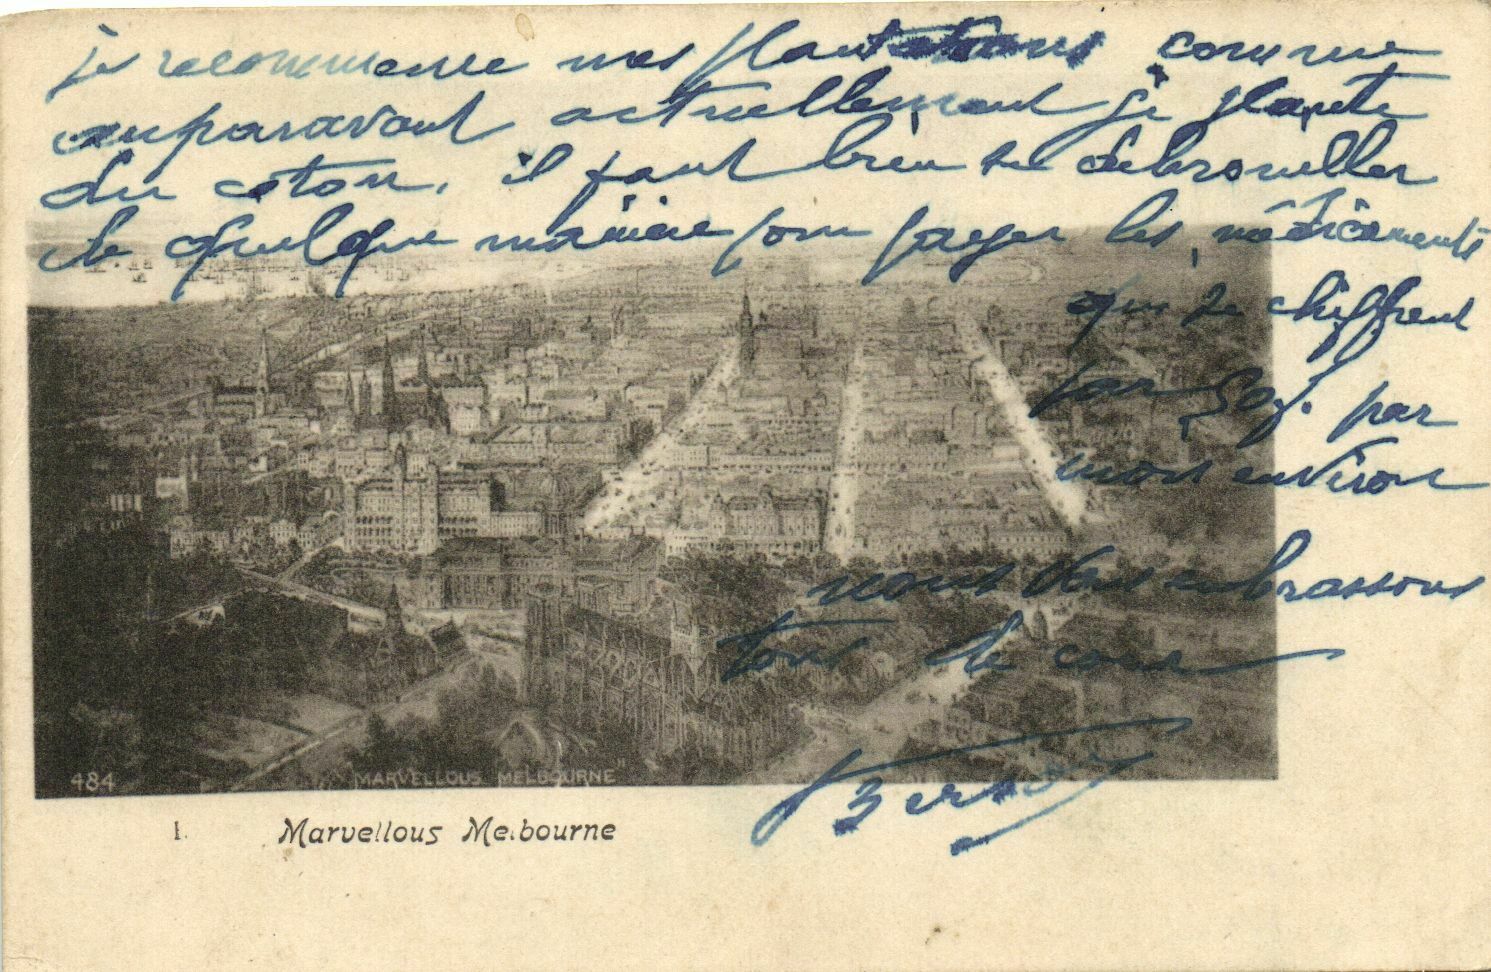 je recommence mes plantations comme
auparavant actuellement je plante
du coton, il faut bien se debrouiller
de quelque manière pour payer les médicaments
qui se chiffrent
par 50f. par
mois environ
nous vous embrassons
tous de coeur
484 "MARVELLOUS MELBOURNE"
1. Marvellous Melbourne